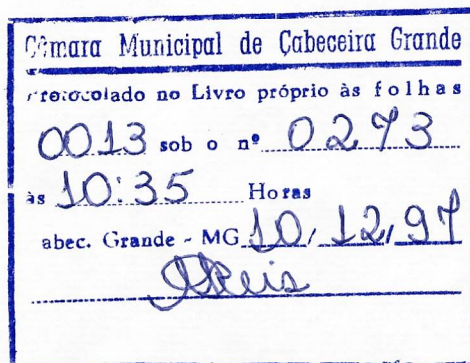 Câmara Municipal de Cabeceira Grande
rotocolado no Livro próprio às folhas
0013 sob o nº 0273
às 10:35 Horas
abec. Grande - MG 10/12/97